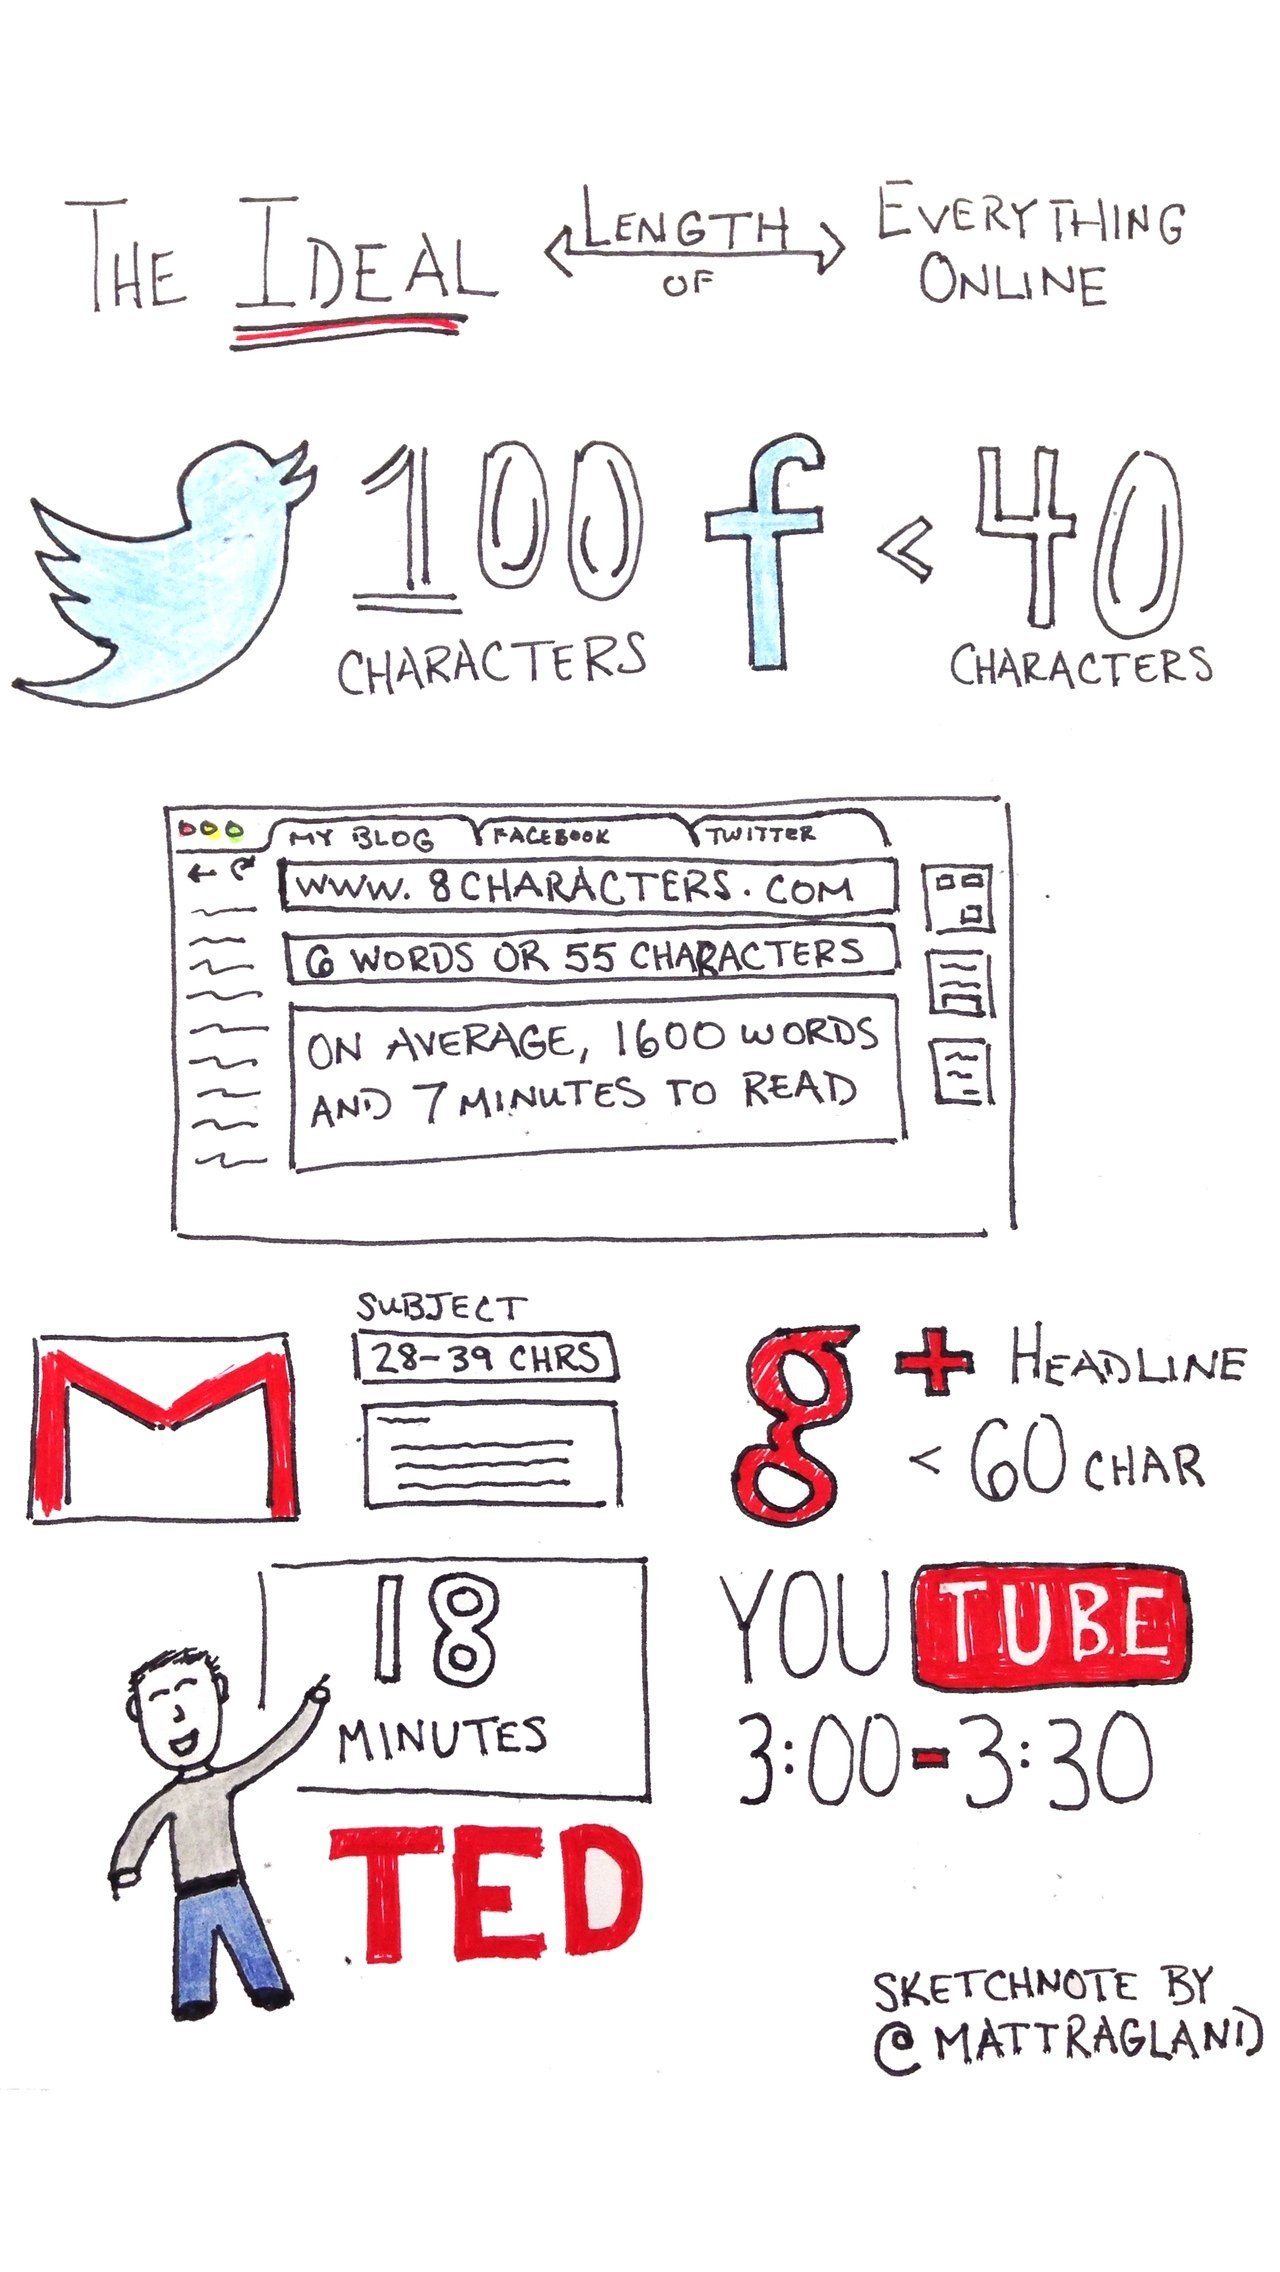 THE IDEAL LENGTH OF EVERYTHING ONLINE
100
CHARACTERS
f < 40
CHARACTERS
MY BLOG FACEBOOK TWITTER
WWW.8CHARACTERS.COM
6 WORDS OR 55 CHARACTERS
ON AVERAGE, 1600 WORDS
AND 7 MINUTES TO READ
SUBJECT
28-39 CHRS
g + HEADLINE
< 60 CHAR
18
MINUTES
TED
YOU TUBE
3:00-3:30
SKETCHNOTE BY
@MATTRAGLAND